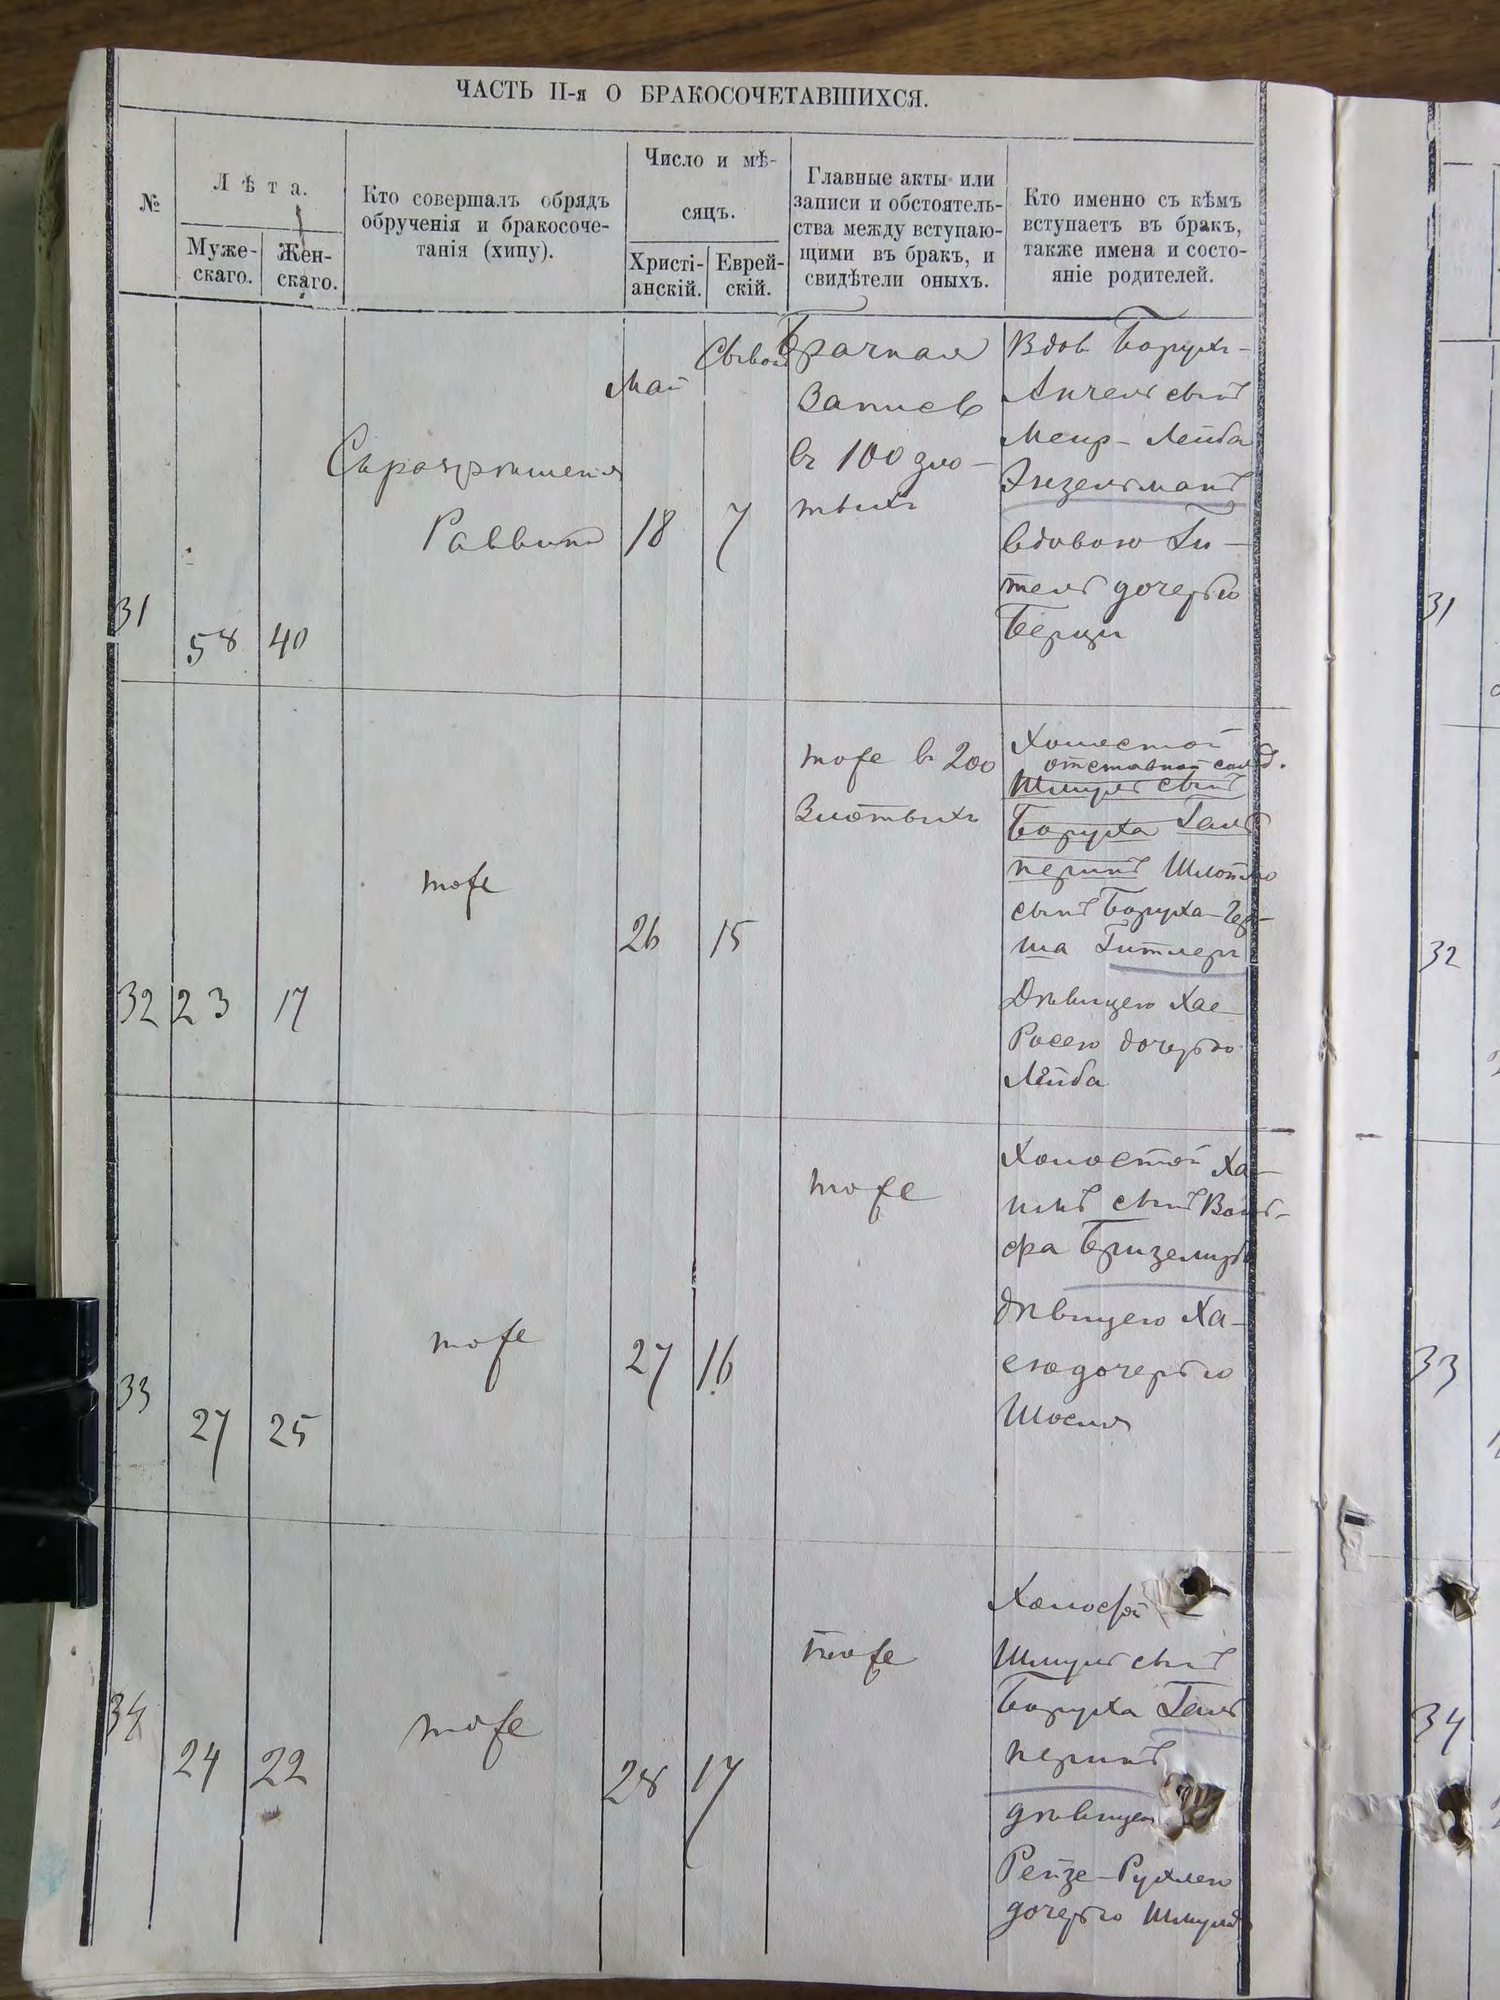 ЧАСТЬ II-я О БРАКОСОЧЕТАВШИХСЯ.
№
Лѣта.
Муже-
скаго.
Жен-
скаго.
Кто совершалъ обрядъ
обрученія и бракосоче-
танія (хипу).
Число и мѣ-
сяцъ.
Христі-
анскій.
Еврей-
скій.
Главные акты или
записи и обстоятель-
ства между вступаю-
щими въ бракъ, и
свидѣтели оныхъ.
Кто именно съ кѣмъ
вступаетъ въ бракъ,
также имена и состо-
яніе родителей.
31
58
40
Раввинъ
Май
18
7
Брачная
Запись
въ 100 зло-
тыхъ
Вдов Борухъ-
Анчель сынъ
Меир-Лейба
Энзельманъ
вдовою Ги-
тель дочерью
Берци
32
23
17
тоже
26
15
тоже въ 200
Злотыхъ
Холостой
отставной солд.
Шмуль сынъ
Боруха Галь
перинъ Шлойма
сынъ Боруха-Гер-
ша Гитлеръ
Дѣвицею Хае-
Росею дочерью
Лейба
33
27
25
тоже
27
16
тоже
Холостой Ха-
имъ сынъ Воль-
фа
дѣвицею Ха-
сею дочерью
34
24
22
тоже
28
17
тоже
Холостой
Шмуль сынъ
Боруха Галь
перинъ
дѣвицею
Рейзе-Рухлею
дочерью Шмуля
31
32
33
34